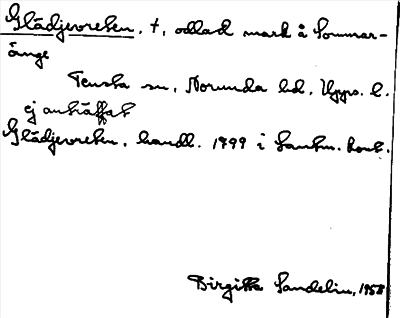 Glädjevreten, †, odlad mark å Sommar-
änge
Tensta sn, Norunda hd, Upps. l.
ej anträffat
Glädjevreten, handl. 1799 i Lantm. kont.
Birgitta Sandelin, 1958